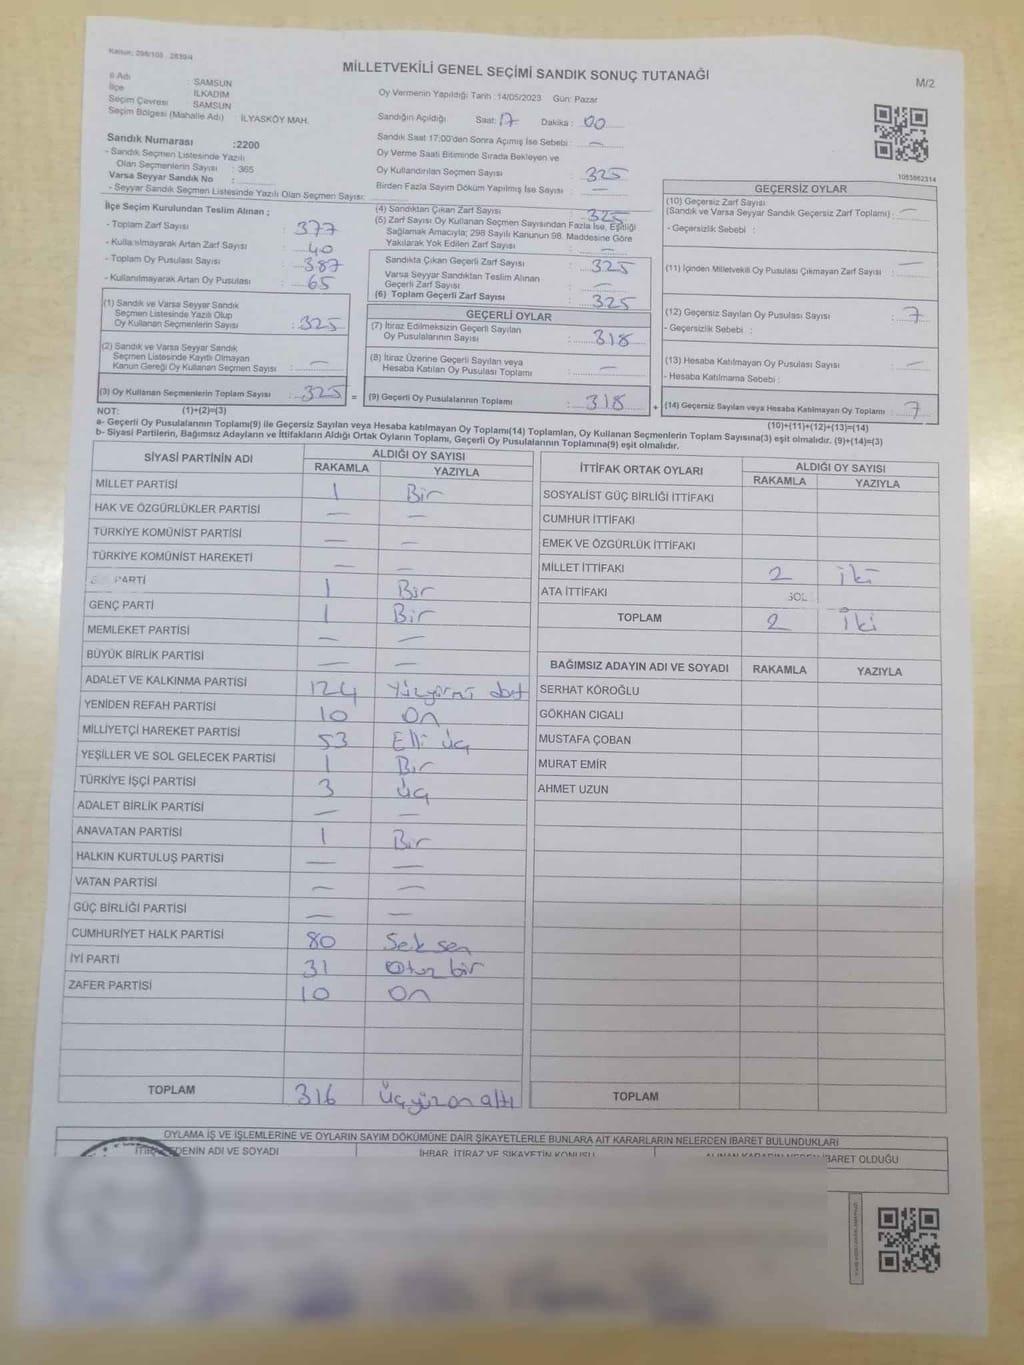 Kanun: 298/105 2839/4
MİLLETVEKİLİ GENEL SEÇİMİ SANDIK SONUÇ TUTANAĞI
M/2
İl Adı : SAMSUN
İlçe : İLKADIM
Seçim Çevresi : SAMSUN
Seçim Bölgesi (Mahalle Adı) İLYASKÖY MAH.
Oy Vermenin Yapıldığı Tarih :14/05/2023 Gün: Pazar
Sandığın Açıldığı Saat: 17 Dakika : 00
Sandık Numarası :2200
- Sandık Seçmen Listesinde Yazılı
Olan Seçmenlerin Sayısı : 365
Varsa Seyyar Sandık No :
- Seyyar Sandık Seçmen Listesinde Yazılı Olan Seçmen Sayısı:
Sandık Saat 17:00'den Sonra Açımış İse Sebebi : —
Oy Verme Saati Bitiminde Sırada Bekleyen ve
Oy Kullandırılan Seçmen Sayısı : 325
Birden Fazla Sayım Döküm Yapılmış İse Sayısı : —
1083862314
İlçe Seçim Kurulundan Teslim Alınan ;
- Toplam Zarf Sayısı : 377
- Kullanılmayarak Artan Zarf Sayısı : 40
- Toplam Oy Pusulası Sayısı : 387
- Kullanılmayarak Artan Oy Pusulası : 65
(4) Sandıktan Çıkan Zarf Sayısı : 325
(5) Zarf Sayısı Oy Kullanan Seçmen Sayısından Fazla İse, Eşitliği
Sağlamak Amacıyla; 298 Sayılı Kanunun 98. Maddesine Göre
Yakılarak Yok Edilen Zarf Sayısı : —
Sandıkta Çıkan Geçerli Zarf Sayısı : 325
Varsa Seyyar Sandıktan Teslim Alınan
Geçerli Zarf Sayısı : —
(6) Toplam Geçerli Zarf Sayısı : 325
GEÇERSİZ OYLAR
(10) Geçersiz Zarf Sayısı
(Sandık ve Varsa Seyyar Sandık Geçersiz Zarf Toplamı) : —
- Geçersizlik Sebebi :
(11) İçinden Milletvekili Oy Pusulası Çıkmayan Zarf Sayısı : —
(12) Geçersiz Sayılan Oy Pusulası Sayısı : 7
- Geçersizlik Sebebi :
(13) Hesaba Katılmayan Oy Pusulası Sayısı : —
- Hesaba Katılmama Sebebi :
(14) Geçersiz Sayılan veya Hesaba Katılmayan Oy Pusulası Toplamı : 7
(1) Sandık ve Varsa Seyyar Sandık
Seçmen Listesinde Yazılı Olup
Oy Kullanan Seçmenlerin Sayısı : 325
(2) Sandık ve Varsa Seyyar Sandık
Seçmen Listesinde Kayıtlı Olmayan
Kanun Gereği Oy Kullanan Seçmen Sayısı : —
(3) Oy Kullanan Seçmenlerin Toplam Sayısı : 325 =
GEÇERLİ OYLAR
(7) İtiraz Edilmeksizin Geçerli Sayılan
Oy Pusulalarının Sayısı : 318
(8) İtiraz Üzerine Geçerli Sayılan veya
Hesaba Katılan Oy Pusulası Toplamı : —
(9) Geçerli Oy Pusulalarının Toplamı : 318 +
NOT: (1)+(2)=(3)
(10)+(11)+(12)+(13)=(14)
a- Geçerli Oy Pusulaları Toplamı(9) ile Geçersiz Sayılan veya Hesaba katılmayan Oy Pusulası Toplamı(14) Toplamları, Oy Kullanan Seçmenlerin Toplam Sayısına(3) eşit olmalıdır. (9)+(14)=(3)
b- Siyasi Partilerin, Bağımsız Adayların ve İttifakların Aldığı Ortak Oyların Toplamı, Geçerli Oy Pusulalarının Toplamına(9) eşit olmalıdır.
SİYASİ PARTİNİN ADI ALDIĞI OY SAYISI
RAKAMLA YAZIYLA
MİLLET PARTİSİ 1 Bir
HAK VE ÖZGÜRLÜKLER PARTİSİ — —
TÜRKİYE KOMÜNİST PARTİSİ — —
TÜRKİYE KOMÜNİST HAREKETİ — —
PARTİ 1 Bir
GENÇ PARTİ 1 Bir
MEMLEKET PARTİSİ — —
BÜYÜK BİRLİK PARTİSİ — —
ADALET VE KALKINMA PARTİSİ 124 Yüzyirmi dört
YENİDEN REFAH PARTİSİ 10 On
MİLLİYETÇİ HAREKET PARTİSİ 53 Elli üç
YEŞİLLER VE SOL GELECEK PARTİSİ 1 Bir
TÜRKİYE İŞÇİ PARTİSİ 3 üç
ADALET BİRLİK PARTİSİ — —
ANAVATAN PARTİSİ 1 Bir
HALKIN KURTULUŞ PARTİSİ — —
VATAN PARTİSİ — —
GÜÇ BİRLİĞİ PARTİSİ — —
CUMHURİYET HALK PARTİSİ 80 Seksen
İYİ PARTİ 31 Otuz bir
ZAFER PARTİSİ 10 On
TOPLAM 316 Üçyüz on altı
İTTİFAK ORTAK OYLARI ALDIĞI OY SAYISI
RAKAMLA YAZIYLA
SOSYALİST GÜÇ BİRLİĞİ İTTİFAKI
CUMHUR İTTİFAKI
EMEK VE ÖZGÜRLÜK İTTİFAKI
MİLLET İTTİFAKI 2 iki
ATA İTTİFAKI SOL
TOPLAM 2 İki
BAĞIMSIZ ADAYIN ADI VE SOYADI RAKAMLA YAZIYLA
SERHAT KÖROĞLU
GÖKHAN CIGALI
MUSTAFA ÇOBAN
MURAT EMİR
AHMET UZUN
TOPLAM
OYLAMA İŞ VE İŞLEMLERİNE VE OYLARIN SAYIM DÖKÜMÜNE DAİR ŞİKAYETLERLE BUNLARA AİT KARARLARIN NELERDEN İBARET BULUNDUKLARI
İTİRAZ EDENİN ADI VE SOYADI İHBAR, İTİRAZ VE ŞİKAYETİN KONUSU ALINAN KARARIN NEDEN İBARET OLDUĞU